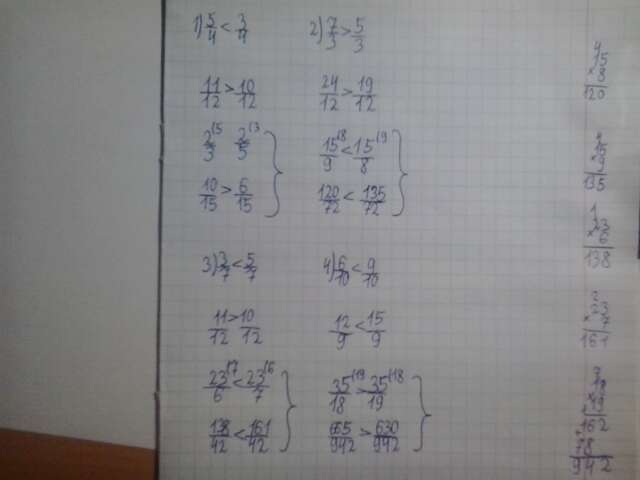 1) 5/4 < 3/4   2) 7/3 > 5/3
11/12 > 10/12   24/12 > 19/12
2/3 (5   2/5 (3   15/9 (8 < 15/8 (9
10/15 > 6/15   120/72 < 135/72
3) 3/7 < 5/7   4) 6/10 < 9/10
11/12 > 10/12   12/9 < 15/9
23/6 (7 < 23/7 (6   35/18 (19 > 35/19 (18
138/42 < 161/42   665/942 > 630/942
4
15
× 8
120
4
15
× 9
135
1
23
× 6
138
2
23
× 7
161
7
18
× 19
162
+ 78
942